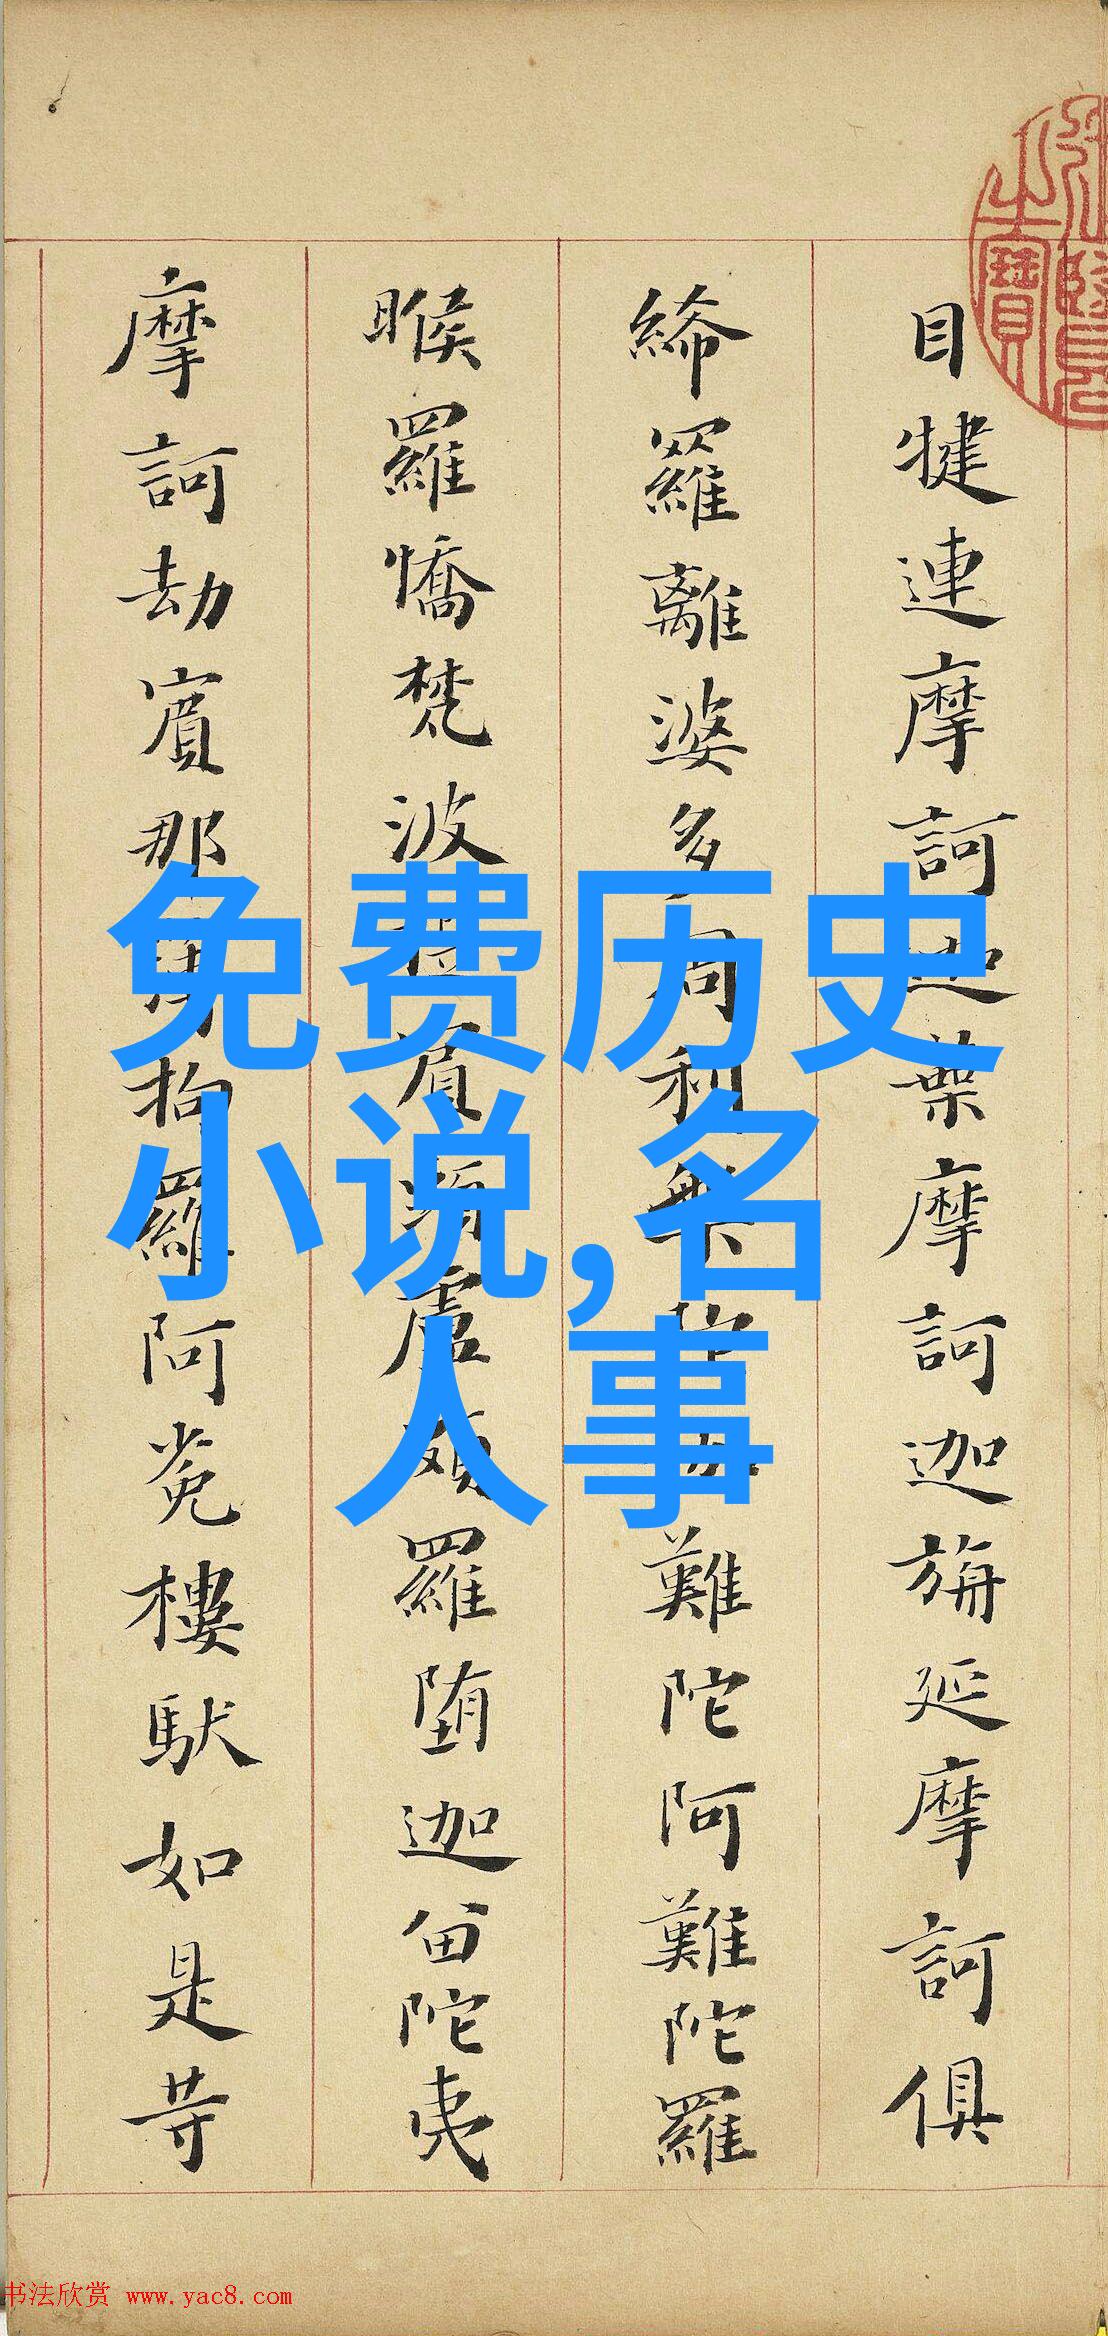 目犍連摩訶迦葉摩訶迦旃延摩訶俱
絺羅離婆多周利槃陀伽難陀阿難陀羅
睺羅憍梵波提賓頭盧頗羅墮迦留陀夷
摩訶劫賓那薄拘羅阿㝹樓馱如是等
免费历史
小说,名
人事
书法欣赏 www.yac8.com